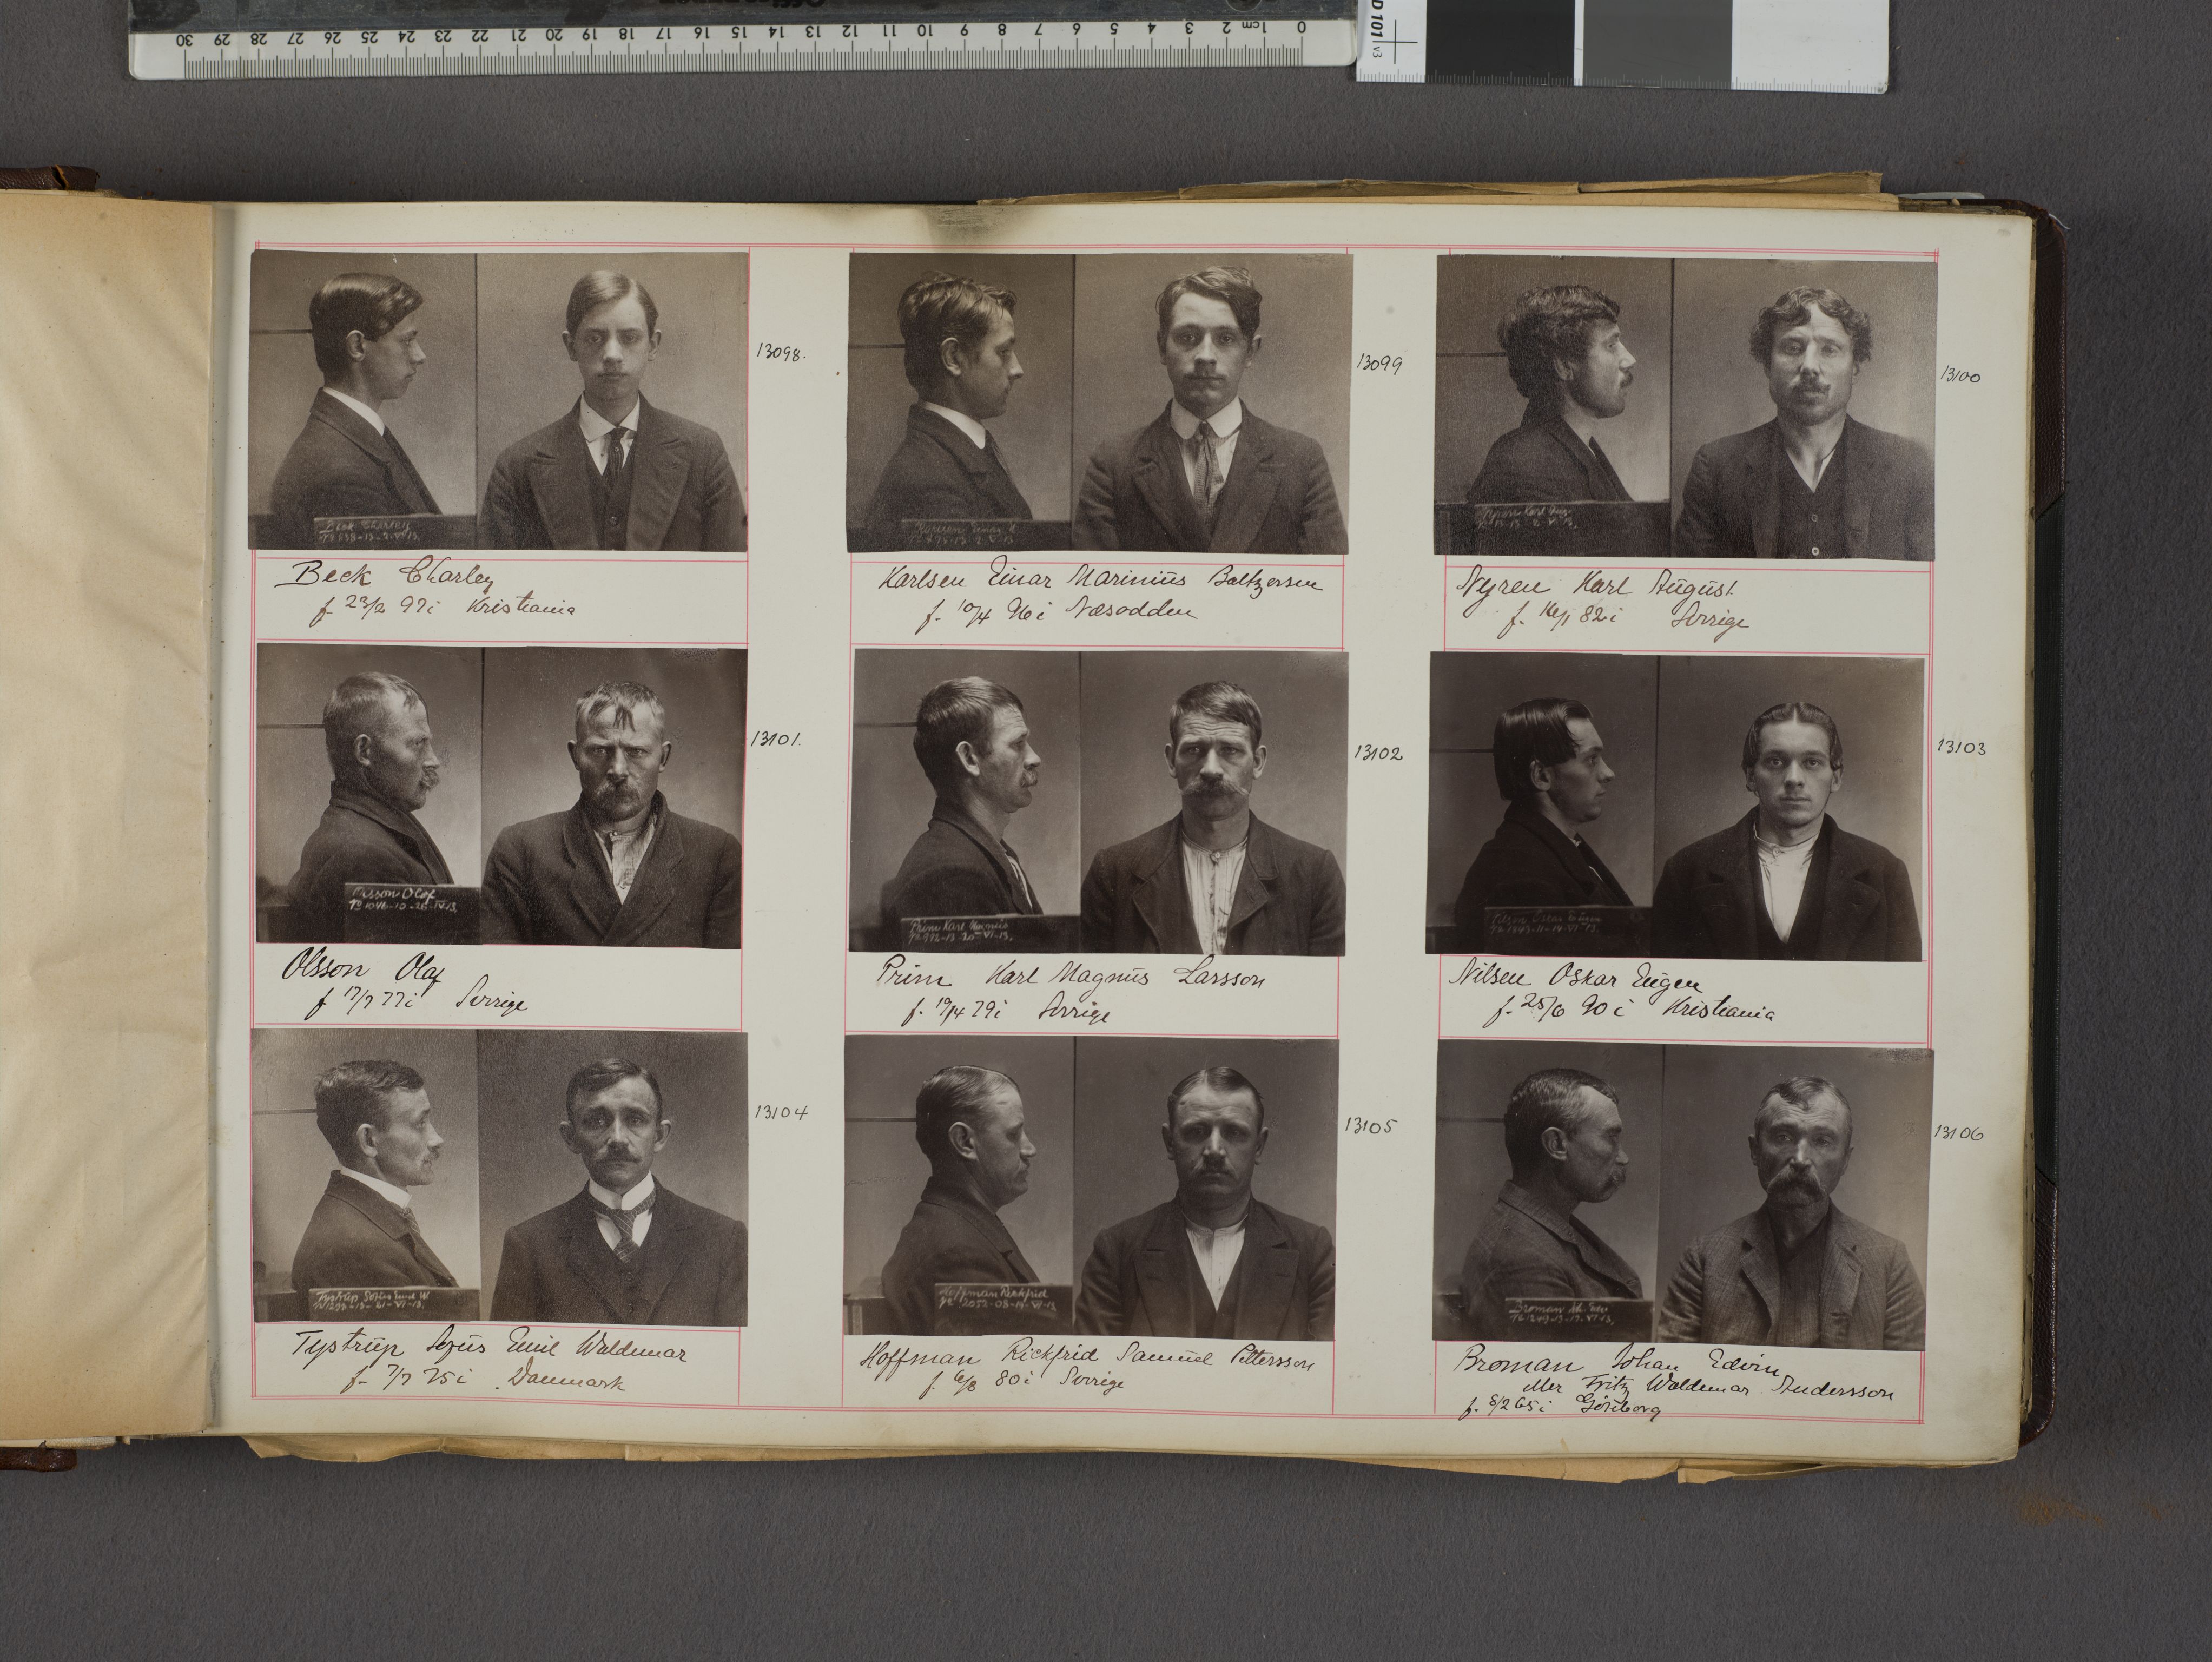 30 29 28 27 26 25 24 23 22 21 20 19 18 17 16 15 14 13 12 11 10 9 8 7 6 5 4 3 2 1cm 0
D 101 v3
13098.
Beck Charley
f. 23/2 97 i Kristiania
13099
Karlsen Einar Marinius Baltzersen
f. 10/4 96 i Næsodden
13100
Nyren Karl August
f. 16/1 82 i Sverige
13101.
Olsson Olof
No 1046-10-
Olsson Olaf
f 17/7 77 i Sverige
13102
Prim Karl Magnus
No 992-13-20-VI-13.
Prim Karl Magnus Larsson
f. 19/4 79 i Sverige
13103
Nilsen Oskar Eugen
f. 25/6 90 i Kristiania
13104
Tystrup Emil W
No 1293-13-21-VI-13.
Tystrup Emil Waldemar
f. 7/7 75 i Danmark
13105
Hoffman Rickfrid
Hoffman Rickfrid Samuel Pettersson
f. 6/8 80 i Sverige
13106
Broman
Broman Johan Edvin
eller Fritz Waldemar Andersson
f. 8/2 65 i Göteborg